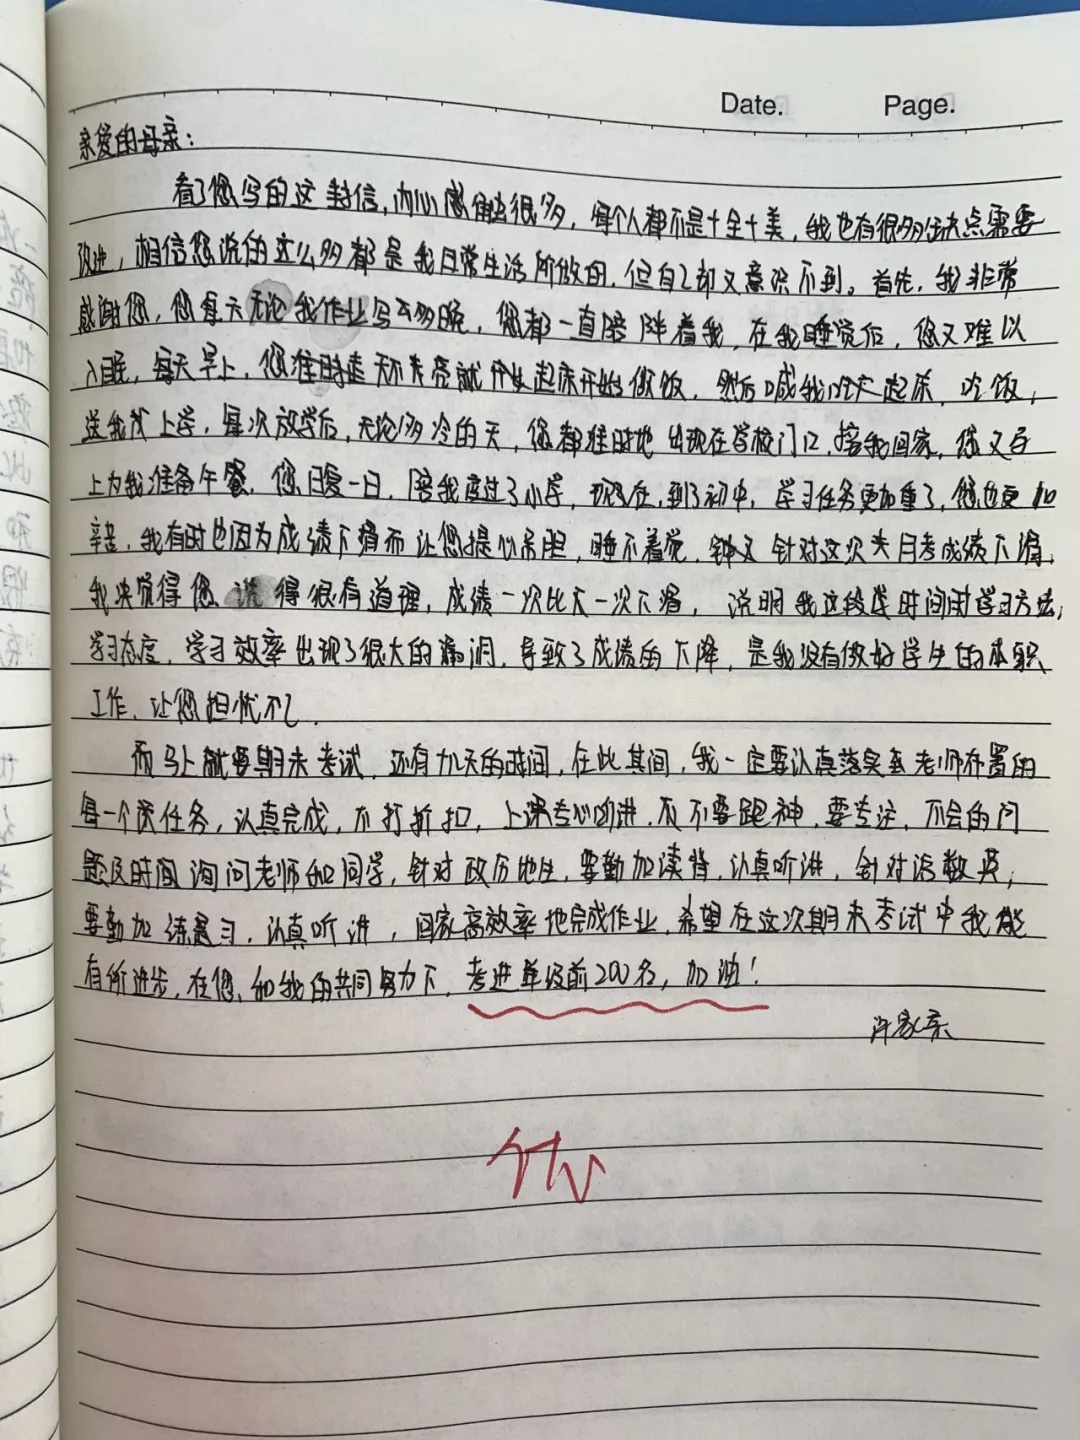 Date. Page.
亲爱的母亲：
看了您写的这封信，内心感触很多，每个人都不是十全十美，我也有很多缺点需要
改进，相信您说的这么多都是我日常生活所做的，但自己却又意识不到。首先，我非常
感谢您，您每天无论我作业写多晚，您都一直陪伴着我，在我睡觉后，您又难以
入眠，每天早上，您准时天不亮就起床开始做饭，然后喊我起床，吃饭，
送我上学，每次放学后，无论多冷的天，您都准时地出现在学校门口，接我回家，您又马
上为我准备午餐，您日复一日，陪我度过了小学，现在，到了初中，学习任务更加重了，您也更加
辛苦，我有时也因为成绩下滑而让您提心吊胆，睡不着觉，针对这次月考成绩下滑，
我觉得您说得很有道理，成绩一次比一次下滑，说明我这段时间学习方法，
学习态度，学习效率出现了很大的漏洞，导致了成绩的下降，是我没有做好学生的本职
工作，让您担忧不已.
而马上就要期末考试，还有九天的时间，在此其间，我一定要认真落实老师布置的
每一个项任务，认真完成，不打折扣，上课专心听讲，不要跑神，要专注，不会的问
题及时间询问老师和同学，针对政历地生，要勤加读背，认真听讲，针对语数英，
要勤加练习，认真听讲，回家高效率地完成作业，希望在这次期末考试中我能
有所进步，在您和我的共同努力下，考进年级前200名，加油！
许家
优